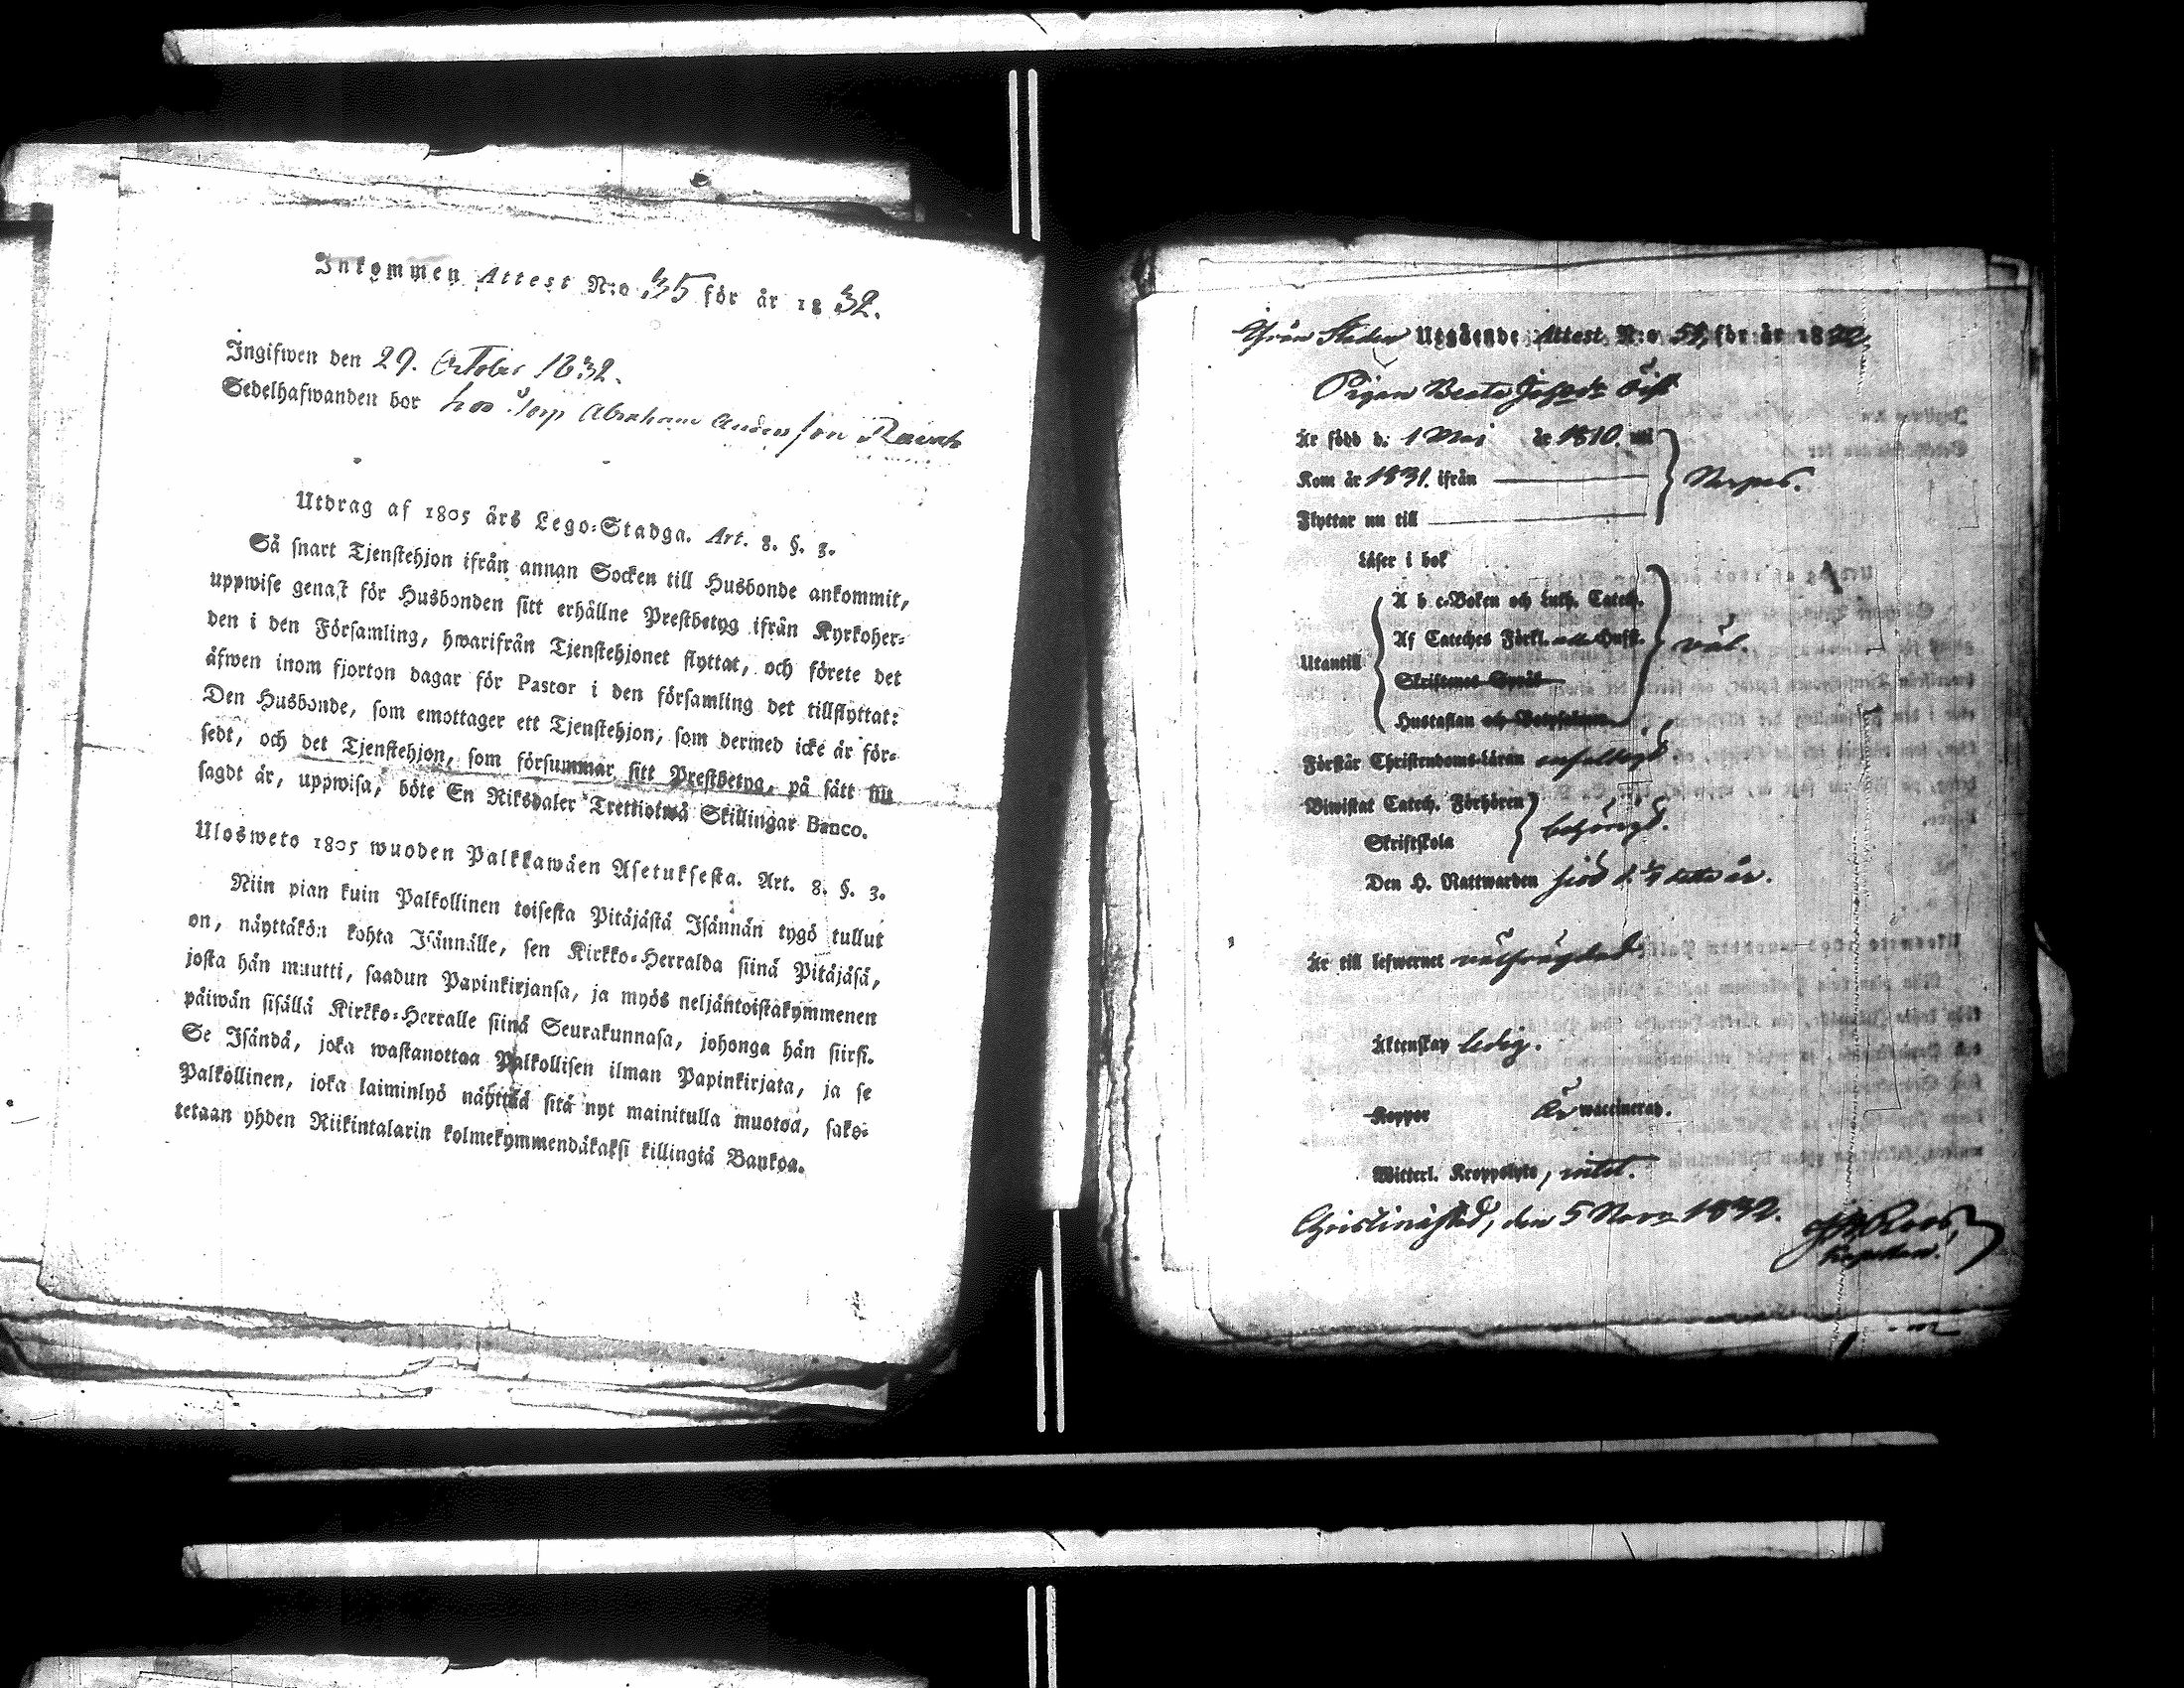 Inkommen Attest N:o 35 för år 1832.
Ingifwen den 29. October 1832.
Sedelhafwanden bor hos Torp Abraham Andersson
Utdrag af 1805 års Lego-Stadga. Art. 8. §. 3.
Så snart Tjenstehjon ifrån annan Socken till Husbonde ankommit,
uppwise genast för Husbonden sitt erhållne Prestbetyg ifrån Kyrkoher-
den i den Församling, hwarifrån Tjenstehjonet flyttat, och förete det
äfwen inom fjorton dagar för Pastor i den församling det tillflyttat:
Den Husbonde, som emottager ett Tjenstehjon, som dermed icke är för-
sedt, och det Tjenstehjon, som försummar sitt Prestbetyg, på sätt nu
sagdt är, uppwisa, böte En Riksdaler Trettiotwå Skillingar Banco.
Ulosweto 1805 wuoden Palkkawäen Asetuksesta. Art. 8. §. 3.
Niin pian kuin Palkollinen toisesta Pitäjästä Isännän tygö tullut
on, näyttäkön kohta Isännälle, sen Kirkko-Herralda siinä Pitäjäsä,
josta hän muutti, saadun Papinkirjansa, ja myös neljäntoistakymmenen
päiwän sisällä Kirkko-Herralle siinä Seurakunnasa, johonga hän siirsi.
Se Isändä, joka wastanottaa Palkollisen ilman Papinkirjata, ja se
Palkollinen, joka laiminlyö näyttää sitä nyt mainitulla muotoa, sako-
tetaan yhden Riikintalarin kolmekymmendäkaksi killingiä Bankoa.
Ifrån Staden Utgående Attest N:o för år 1832
Pigan Beata
Är född d. 1 Maj år 1810. uti
Kom år 1831. ifrån
Närpes.
Flyttar nu till
Läser i bok
A b c-Boken och Luth. Catech.
Af Cateches Förkl. Husft.
Utantill
väl.
Skriftenes Språk
Hustaflan och
Förstår Christendoms-Läran enfaldigt
Biwistat Catech. Förhören
behörigt.
Skriftskola
Den H. Nattwarden
Är till lefwernet välfrägdad
Äktenskap ledig.
Koppor Är waccinerad.
Witterl. Kroppslyte, intet.
Christinæstad, den 5 Nov. 1832.
Roos,
Capellan.